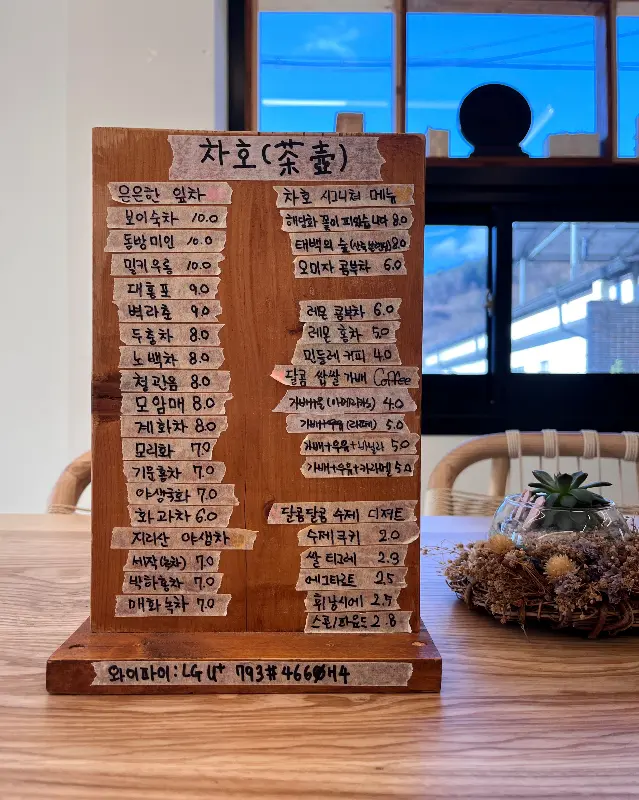 차호(茶壺)
은은한 잎차
보이숙차 10.0
동방미인 10.0
밀키우롱 10.0
대홍포 9.0
벽라춘 9.0
두충차 8.0
노백차 8.0
철관음 8.0
모암매 8.0
계화차 8.0
모리화 7.0
기문홍차 7.0
야생국화 7.0
화과차 6.0
지리산 야생차
세작(녹차) 7.0
박하홍차 7.0
매화녹차 7.0
차호 시그니쳐 메뉴
해당화 꽃이 피었습니다 8.0
태백의 숲 8.0
오미자 콤부차 6.0
레몬 콤부차 6.0
레몬 홍차 5.0
민들레 커피 4.0
달콤 쌉쌀 가배 Coffee
가배+물 (아메리카노) 4.0
가배+우유 (라떼) 5.0
가배+우유+바닐라 5.0
가배+우유+카라멜 5.0
달콤달콤 수제 디저트
수제쿠키 2.0
쌀 티그레 2.9
에그타르트 2.5
휘낭시에 2.5
스콘/파운드 2.8
와이파이: LG U+ 793#4660H4